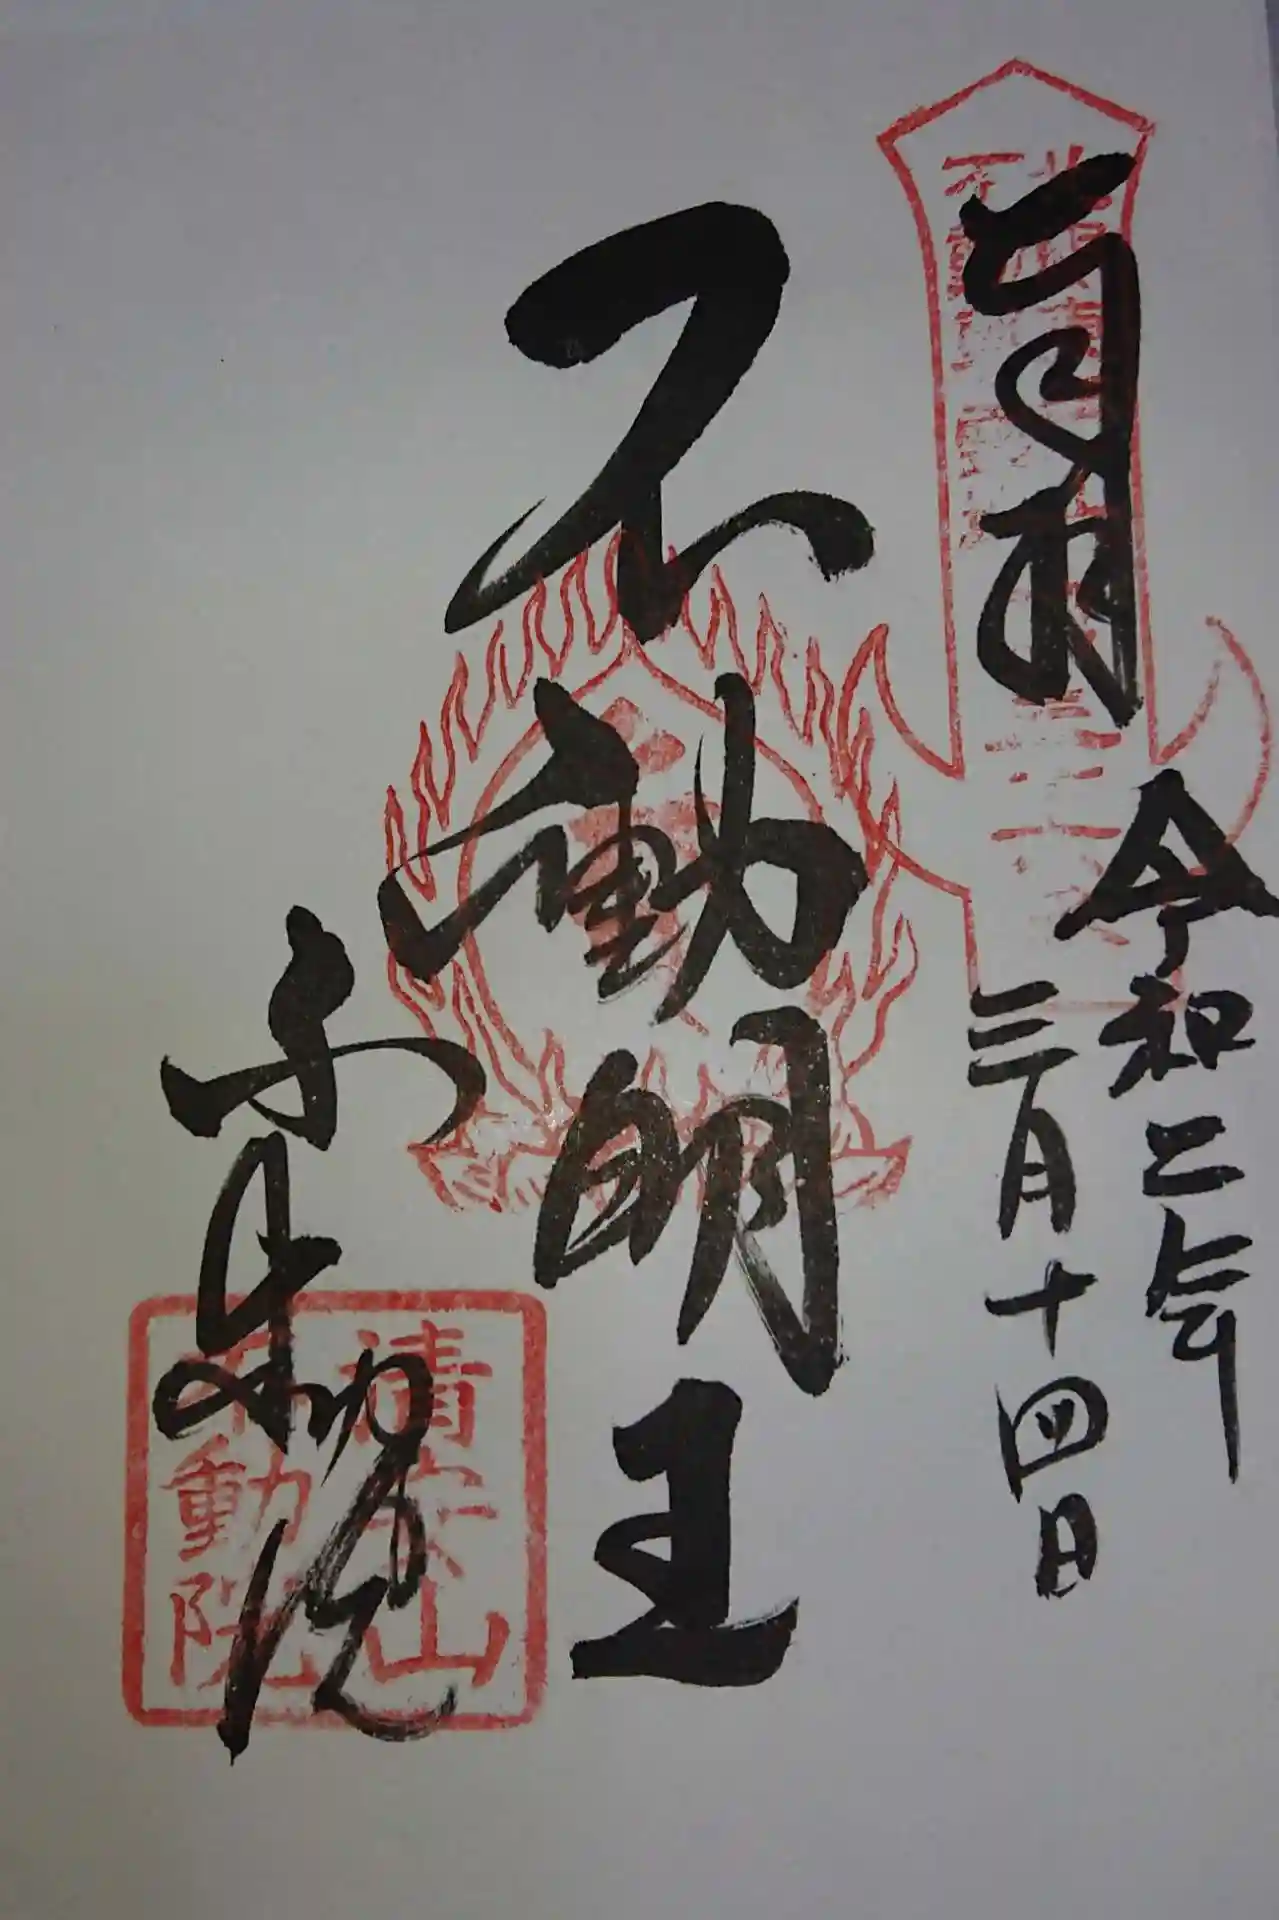 奉拝
令和二年
三月十四日
不動明王
不動院
清安山
不動院